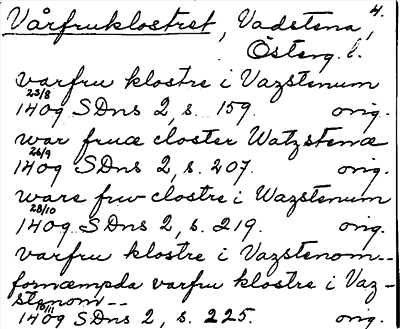 4.
Vårfruklostret, Vadstena,
Österg. l.
varfru klostre i Vazstenum
23/8
1409 SDns 2, s. 159. orig.
war fruæ closter Watzstenæ
26/9
1409 SDns 2, s. 207. orig.
ware frw clostre i Wazstenum
28/10
1409 SDns 2, s. 219. orig.
varfru klostre i Vazstenom--
fornæmpda varfru klostre i Vaz-
stenom--
1409 SDns 2, s. 225. orig.